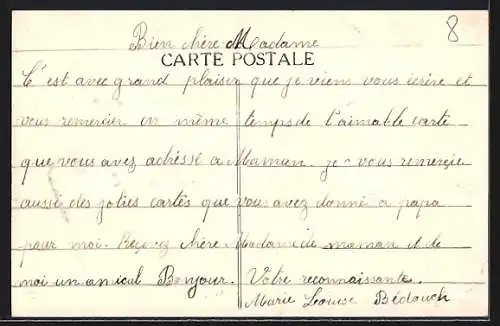 8
Bien chère Madame
CARTE POSTALE
C'est avec grand plaiser que je viens vous écrire et
vous remercier en même temps de l'aimable carte
que vous avez adréssé a Maman. je vous remerçie
aussi des jolies cartés que vous avez donné a papa
pour moi. Reçevez chère Madame de maman et de
moi un amical Bonjour. Votre reconnaissante.
Marie Louise Bédouch